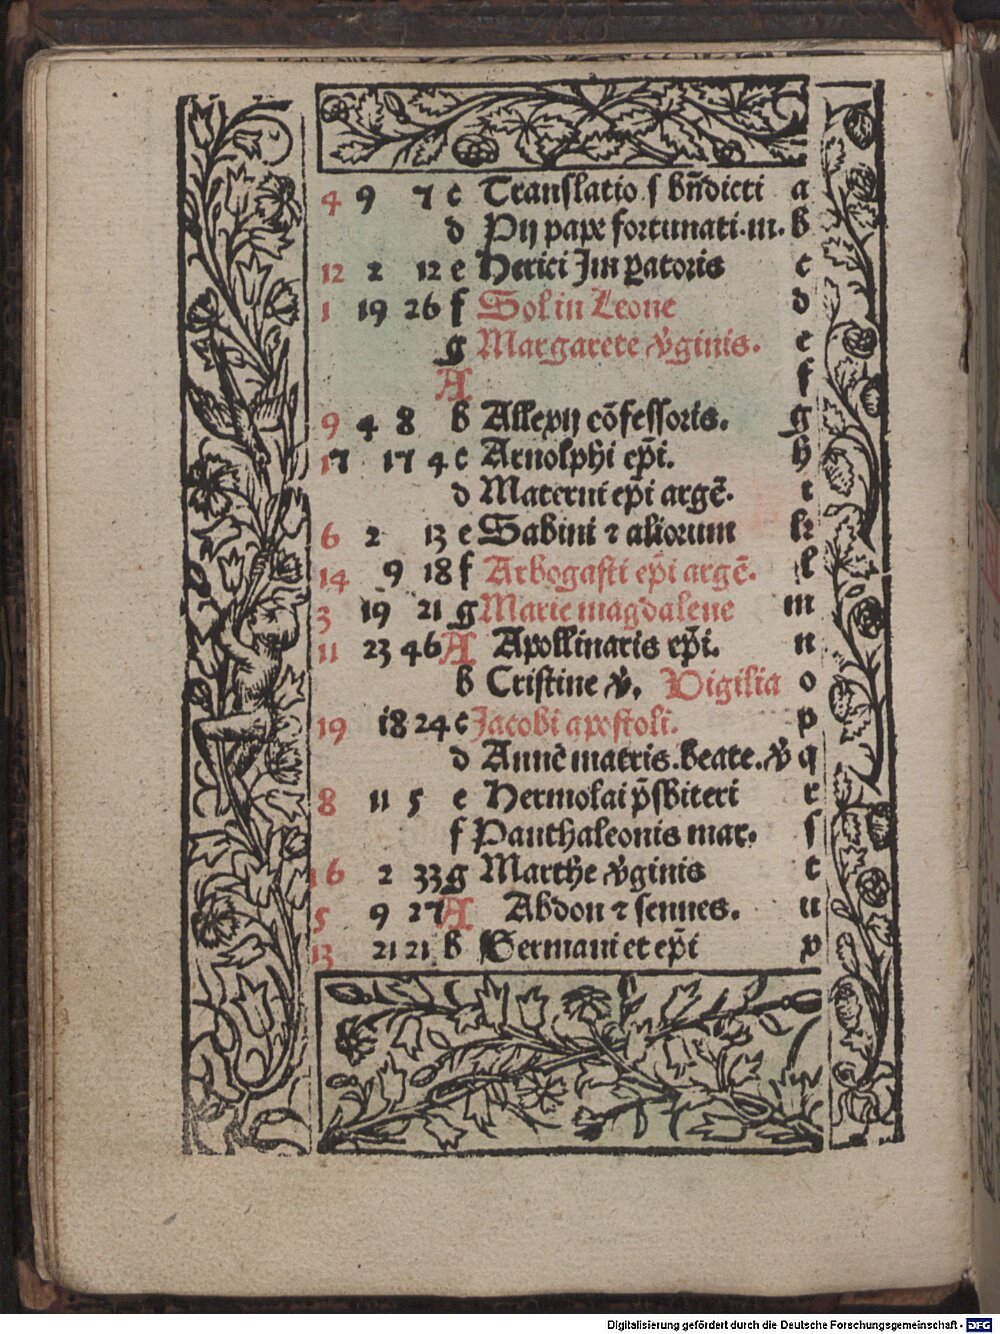 4 9 7 c Translatio s bñdicti a
d Pij pape fortunati·m· b
12 2 12 e Herici Imꝑatoris c
1 19 26 f Sol in Leone d
g Margarete v̔ginis. e
A f
9 4 8 b Allexij cõfessoris. g
17 17 4 c Arnolphi ep̃i. h
d Materni ep̃i argẽ. i
6 2 13 e Sabini ⁊ aliorum k
14 9 18 f Arbogasti ep̃i argẽ. l
3 19 21 g Marie magdalene m
11 23 46 A Apollinaris ep̃i. n
b Cristine v̔. Vigilia o
19 18 24 c Jacobi apostoli. p
d Anne matris.beate.v̔ q
8 11 5 e Hermolai p̃sbiteri r
f Panthaleonis mar. s
16 2 33 g Marthe v̔ginis t
5 9 27 A Abdon ⁊ sennes. u
13 21 21 b Germani et ep̃i v
Digitalisierung gefördert durch die Deutsche Forschungsgemeinschaft - DFG